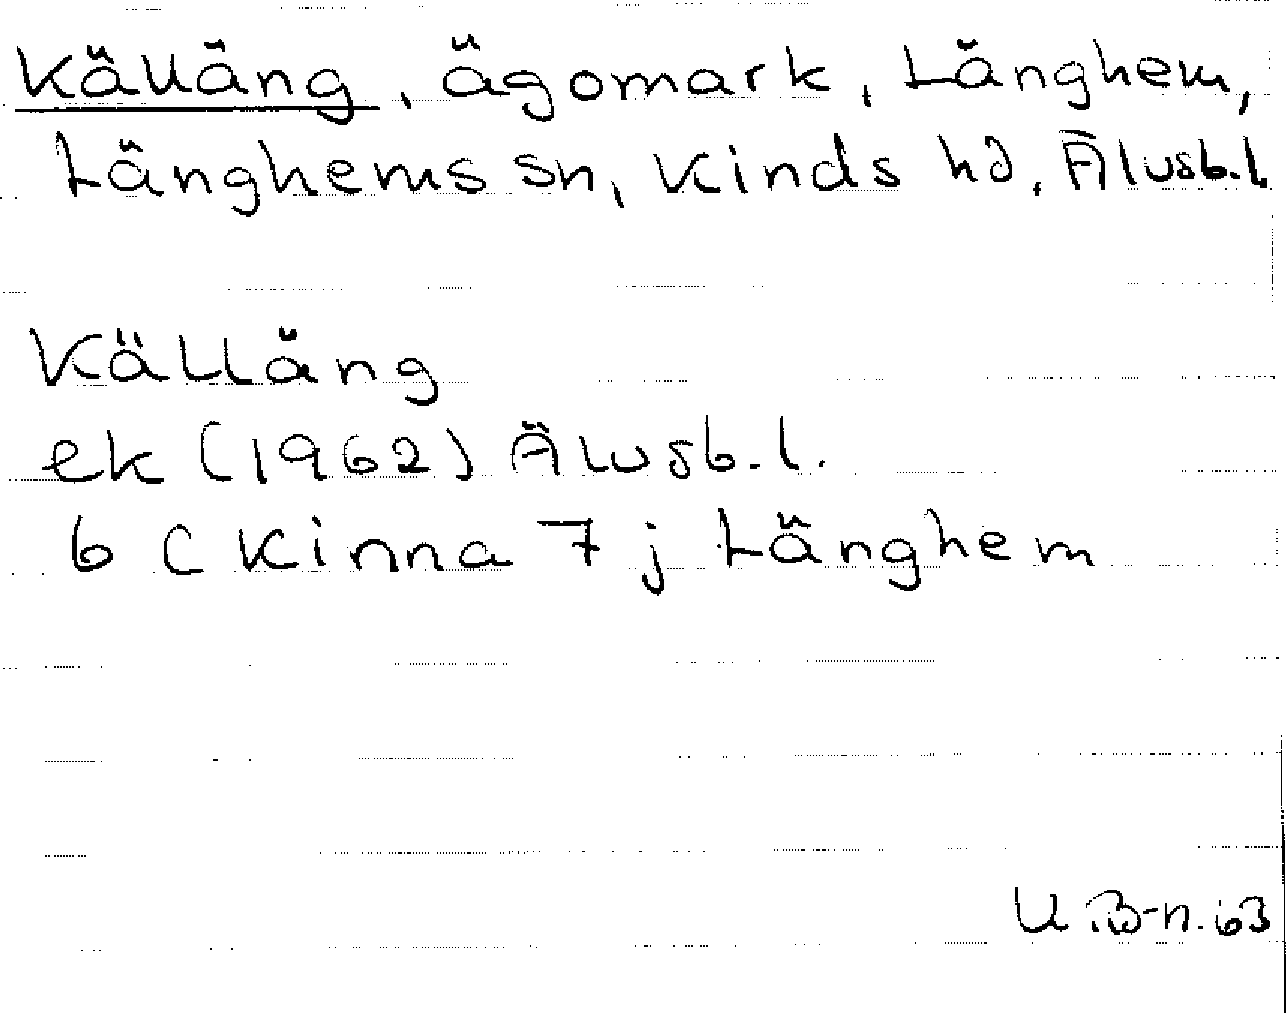 Källäng, ägomark, Länghem,
Länghems sn, Kinds hd, Älvsb.l.
Källäng
ek (1962) Älvsb.l.
6 C Kinna 7 j Länghem
U.B-n.63